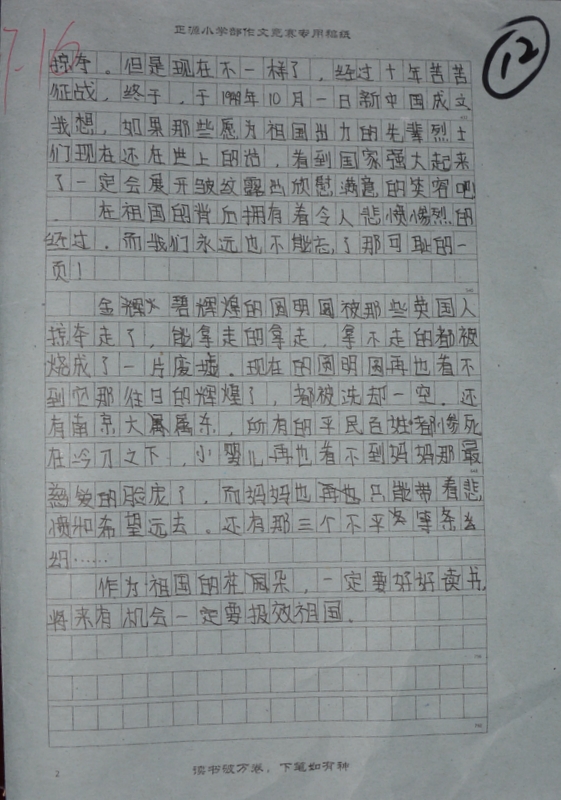 正源小学部作文竞赛专用稿纸
7-16
12
掠夺。但是现在不一样了，经过十年苦苦
征战，终于，于1949年10月一日新中国成文
我想，如果那些愿为祖国出力的先辈烈士
们现在还在世上的话，看到国家强大起来
了一定会展开皱纹露出欣慰满意的笑容吧
。 在祖国的背后拥有着令人悲愤惨烈的
经过。而我们永远也不能忘了那可耻的一
页！
金辉火碧辉煌的圆明圆被那些英国人
掠夺走了，能拿走的拿走，拿不走的都被
烧成了一片废墟。现在的圆明圆再也看不
到它那往日的辉煌了，都被洗却一空。还
有南京大属属东，所有的平民百姓都惨死
在冷刀之下，小婴儿再也看不到妈妈那最
慈爱的脸庞了，而妈妈也再也只能带着悲
愤和希望远去。还有那三个不平等条约
……
作为祖国的花朵，一定要好好读书，
将来有机会一定要报效祖国。
2
读书破万卷，下笔如有神